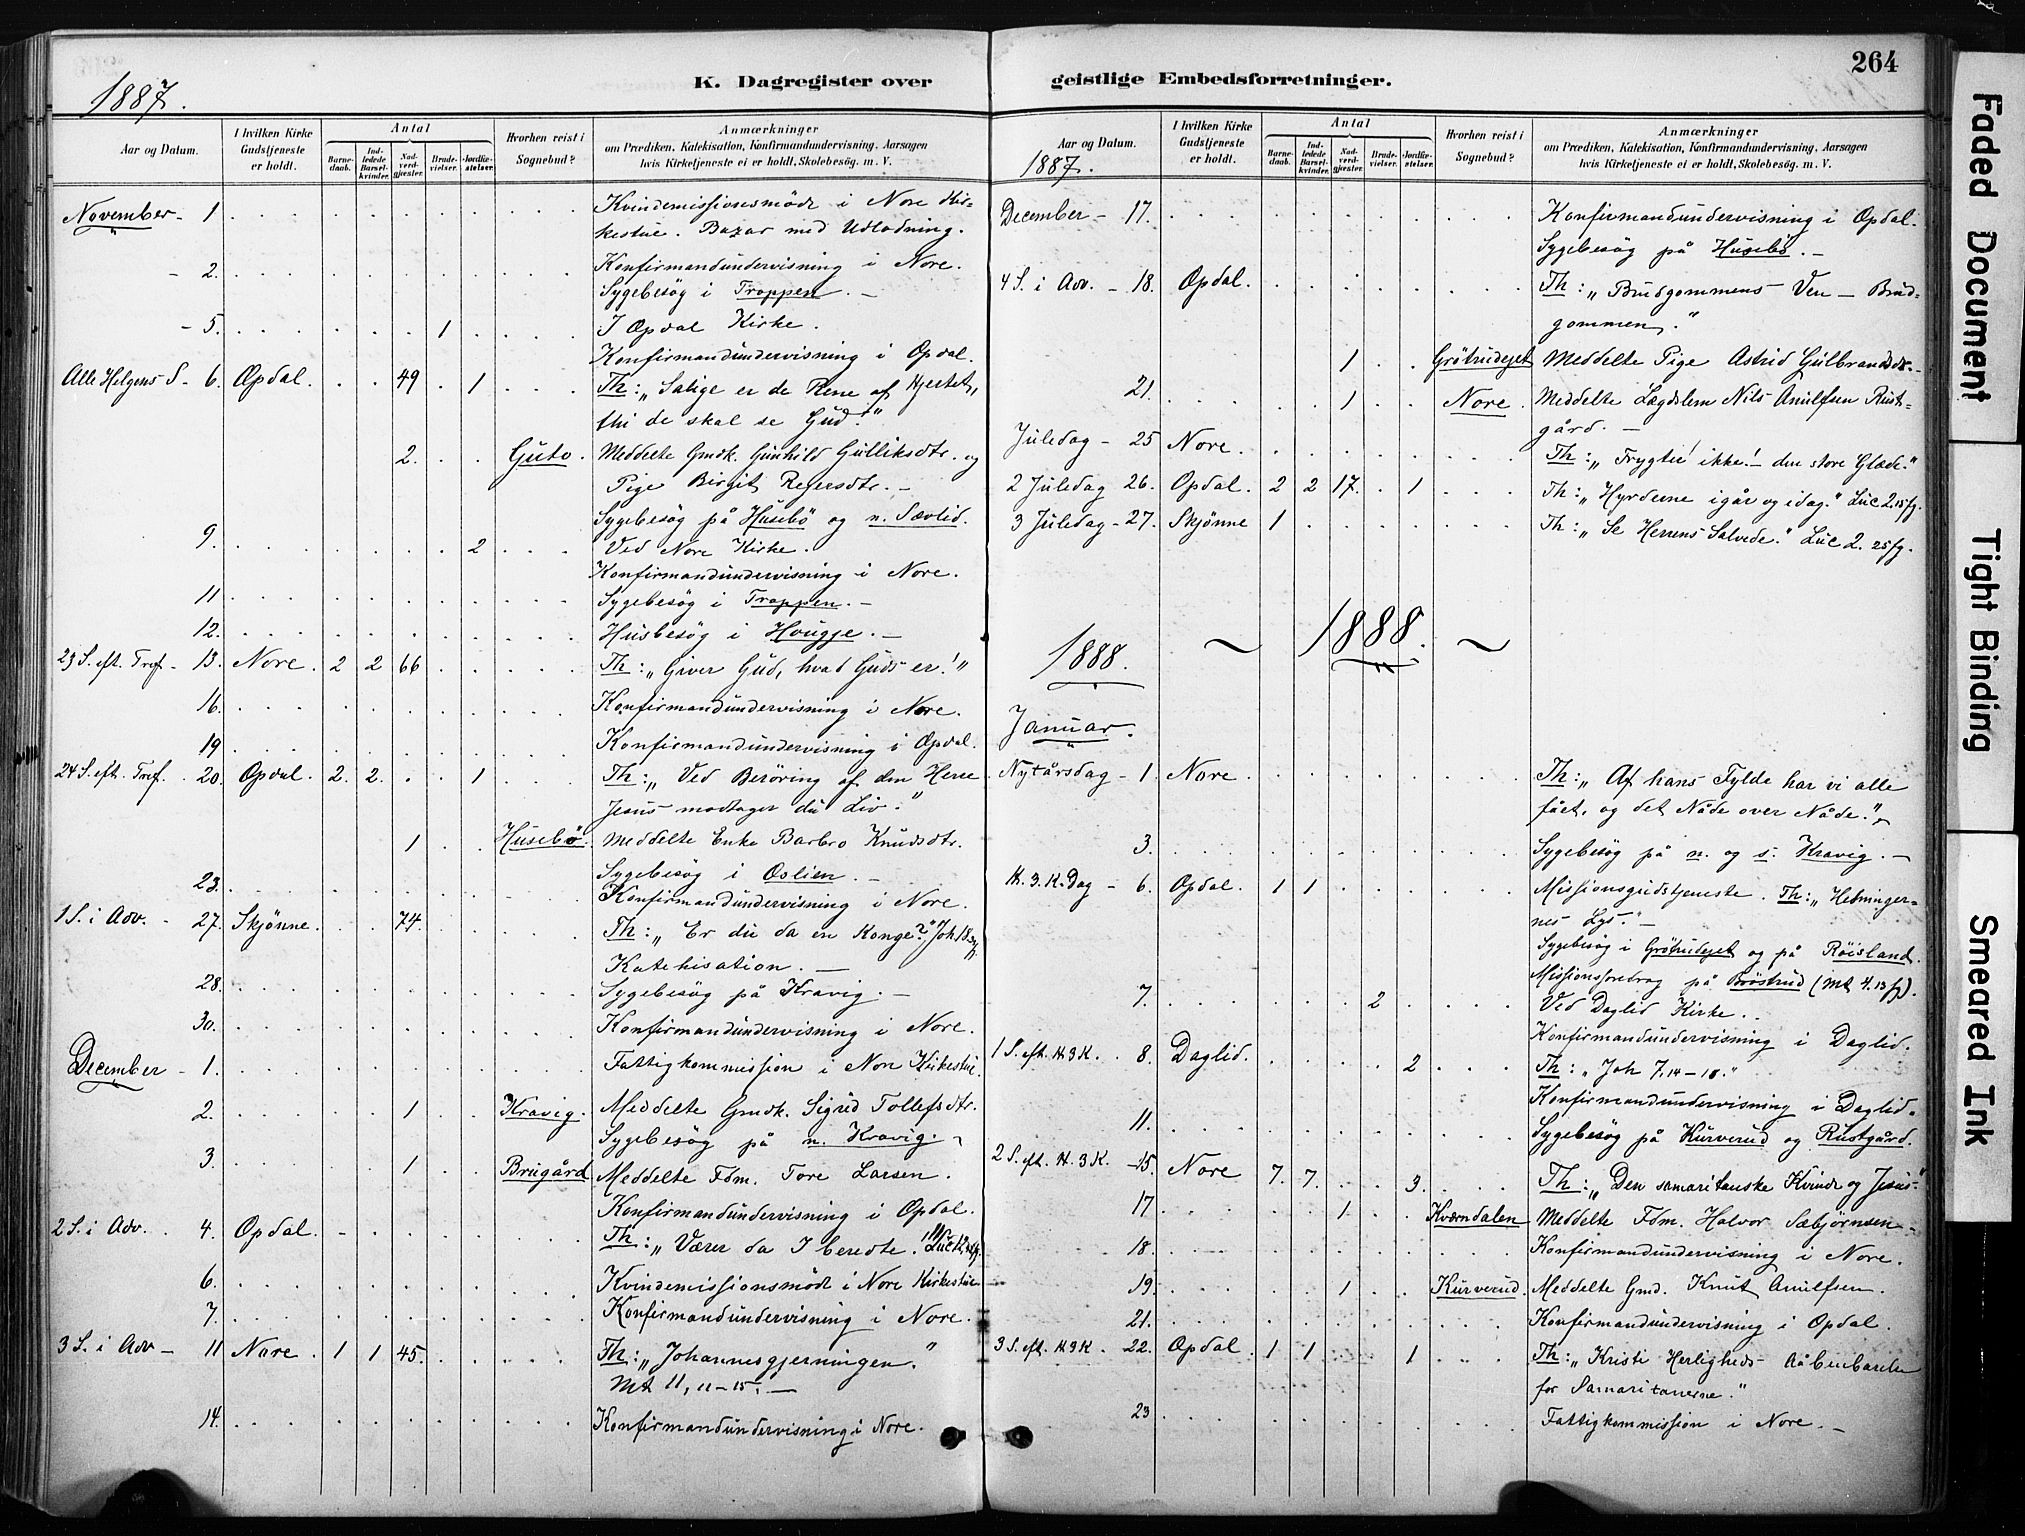 264
K. Dagregister over geistlige Embedsforretninger.
1887.
Aar og Datum.
I hvilken Kirke Gudstjeneste er holdt.
Antal
Barnedaab.
Indledede Barselkvinder.
Nadverdgjester.
Brudevielser.
Jordfæstelser.
Hvorhen reist i Sognebud?
Anmærkninger
om Prædiken, Katekisation, Konfirmandundervisning, Aarsagen
hvis Kirketjeneste ei er holdt, Skolebesög. m. V.
November - 1 Kvindemissionsmöde i Nore Kir-
kestue. Bazar med Udlodning.
- 2. Konfirmandundervisning i Nore.
Sygebesög i Troppen. -
- 5. 1 I Opdal Kirke.
Konfirmandundervisning i Opdal.
Alle Helgens S - 6. Opdal. 49 1 Th: „Salige er de Rene af Hjertet,
thi de skal se Gud."
2. Guto. Meddelte Gmdk. Gunhild Gulliksdtr. og
Pige Birgit Reiersdtr. -
Sygebesög på Husebö og n. Sævlid.
9. 2 Ved Nore Kirke.
Konfirmandundervisning i Nore.
11 Sygebesög i Troppen. -
12. Husbesög i Hougje. -
23 S. eft. Tref - 13. Nore. 2 2 66 Th: „Giver Gud, hvad Guds er!"
16. Konfirmandundervisning i Nore.
19 Konfirmandundervisning i Opdal.
24 S. eft. Tref. 20. Opdal. 2. 2. 1 Th: „Ved Beröring af den Herre
Jesus modtager du Liv."
1 Husebö. Meddelte Enke Barbro Knudsdtr.
Sygebesög i Oslien. -
23. Konfirmandundervisning i Nore.
1 S. i Adv. - 27. Skjönne. 74. Th: „Er du da en Konge?" Joh 18
Katekisation. -
28. Sygebesög på Kravig. -
30. Konfirmandundervisning i Nore.
December - 1. Fattigkommission i Nore Kirkestue.
2. 1 Kravig. Meddelte Gmdk. Sigrid Tollefsdtr.
Sygebesög på n. Kravig. -
3. 1 Brugård Meddelte Fdm. Tore Larsen.
Konfirmandundervisning i Opdal.
2 S. i Adv. 4. Opdal. Th: „Værer da I beredte!" Luc 12
6. Kvindemissionsmöde i Nore Kirkestue
7. Konfirmandundervisning i Nore.
3 S. i Adv - 11 Nore. 1 1 45. Th: „Johannesgjerningen."
Mt 11, 11-15. -
14. Konfirmandundervisning i Nore.
Aar og Datum.
1887.
I hvilken Kirke Gudstjeneste er holdt.
Antal
Barnedaab.
Indledede Barselkvinder.
Nadverdgjester.
Brudevielser.
Jordfæstelser.
Hvorhen reist i Sognebud?
Anmærkninger
om Prædiken, Katekisation, Konfirmandundervisning, Aarsagen
hvis Kirketjeneste ei er holdt, Skolebesög. m. V.
December - 17. Konfirmandundervisning i Opdal.
Sygebesög på Husebö. -
4 S. i Adv. - 18. Opdal. Th: „Brudgommens Ven - Brud-
gommen."
1 Grötrudejet Meddelte Pige Astrid Gulbrandsdr. -
21. 1 Nore. Meddelte Lægdslem Nils Amulfsen Rust-
gård. -
Juledag - 25 Nore. Th: „Frygter ikke! - den store Glæde."
2 Juledag 26. Opdal. 2 2 17. 1 Th: „Hyrderne igår og idag." Luc 2.15 fg.
3 Juledag - 27. Skjönne 1 Th: „Se Herrens Salvede." Luc 2. 25 fg.
1888. ~ 1888. ~
Januar.
Nytårsdag - 1 Nore. Th: „Af hans Fylde har vi alle
fået, og det Nåde over Nåde."
3. Sygebesög på n. og s. Kravig. -
H. 3. K. Dag - 6. Opdal. 1 1 Missionsgudstjeneste. Th: „Hedninger-
nes Lys." -
Sygebesög i Grötrudejet og på Röisland.
Missionsforedrag på Bröstrud (Mt 4. 13 fg).
7. 2 Ved Daglid Kirke.
Konfirmandundervisning i Daglid.
1 S. eft. H 3 K. 8. Daglid. 2 Th: „Joh 7. 14-18."
Konfirmandundervisning i Daglid.
11. Sygebesög på Kurverud og Rustgård.
2 S. eft. H. 3 K. - 15. Nore 7. 7. 3. Th: „Den samaritanske Kvinde og Jesus."
17 1 Kværndalen Meddelte Fdm. Halvor Sæbjörnsen -
18. Konfirmandundervisning i Nore.
19. 1 Kurverud. Meddelte Gmd. Knut Amulfsen.
21. Konfirmandundervisning i Opdal.
3 S. eft. H 3 K. 22. Opdal. 1 1 1 Th: „Kristi Herligheds Aabenbarelse
for Samaritanerne."
23 Fattigkommission i Nore. -
Faded Document
Tight Binding
Smeared Ink